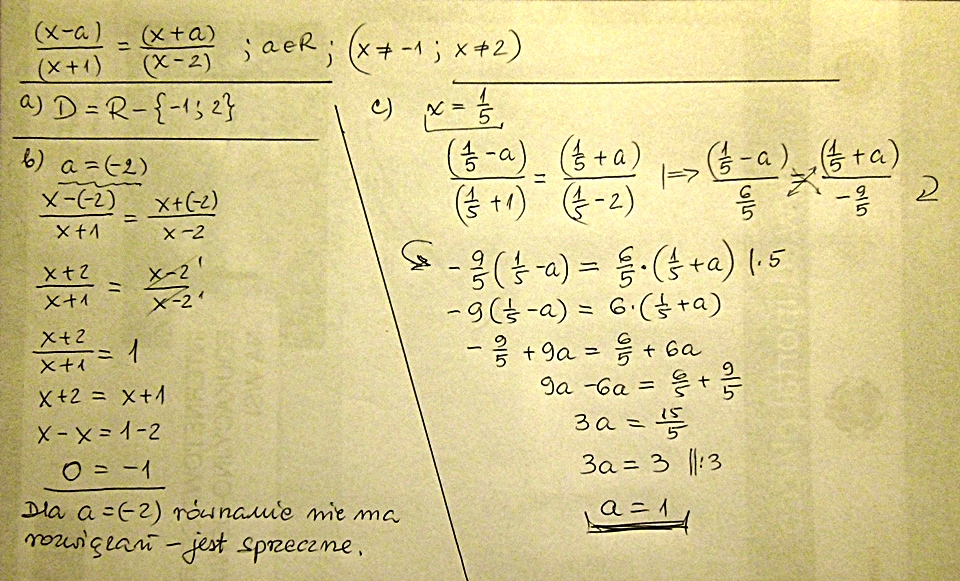 (x-a)/(x+1) = (x+a)/(x-2) ; a∈R ; (x≠-1 ; x≠2)
a) D = R-{-1; 2}
b) a=(-2)
x-(-2)/x+1 = x+(-2)/x-2
x+2/x+1 = x-2¹/x-2₁
x+2/x+1 = 1
x+2 = x+1
x-x = 1-2
0 = -1
Dla a=(-2) równanie nie ma
rozwiązań - jest sprzeczne.
c) x = 1/5
(1/5 -a)/(1/5 +1) = (1/5 +a)/(1/5 -2) |⇒ (1/5 -a)/(6/5) = (1/5 +a)/(-9/5)
-9/5(1/5 -a) = 6/5·(1/5 +a) |·5
-9(1/5 -a) = 6·(1/5 +a)
-9/5 +9a = 6/5 + 6a
9a -6a = 6/5 + 9/5
3a = 15/5
3a = 3 ||:3
a = 1